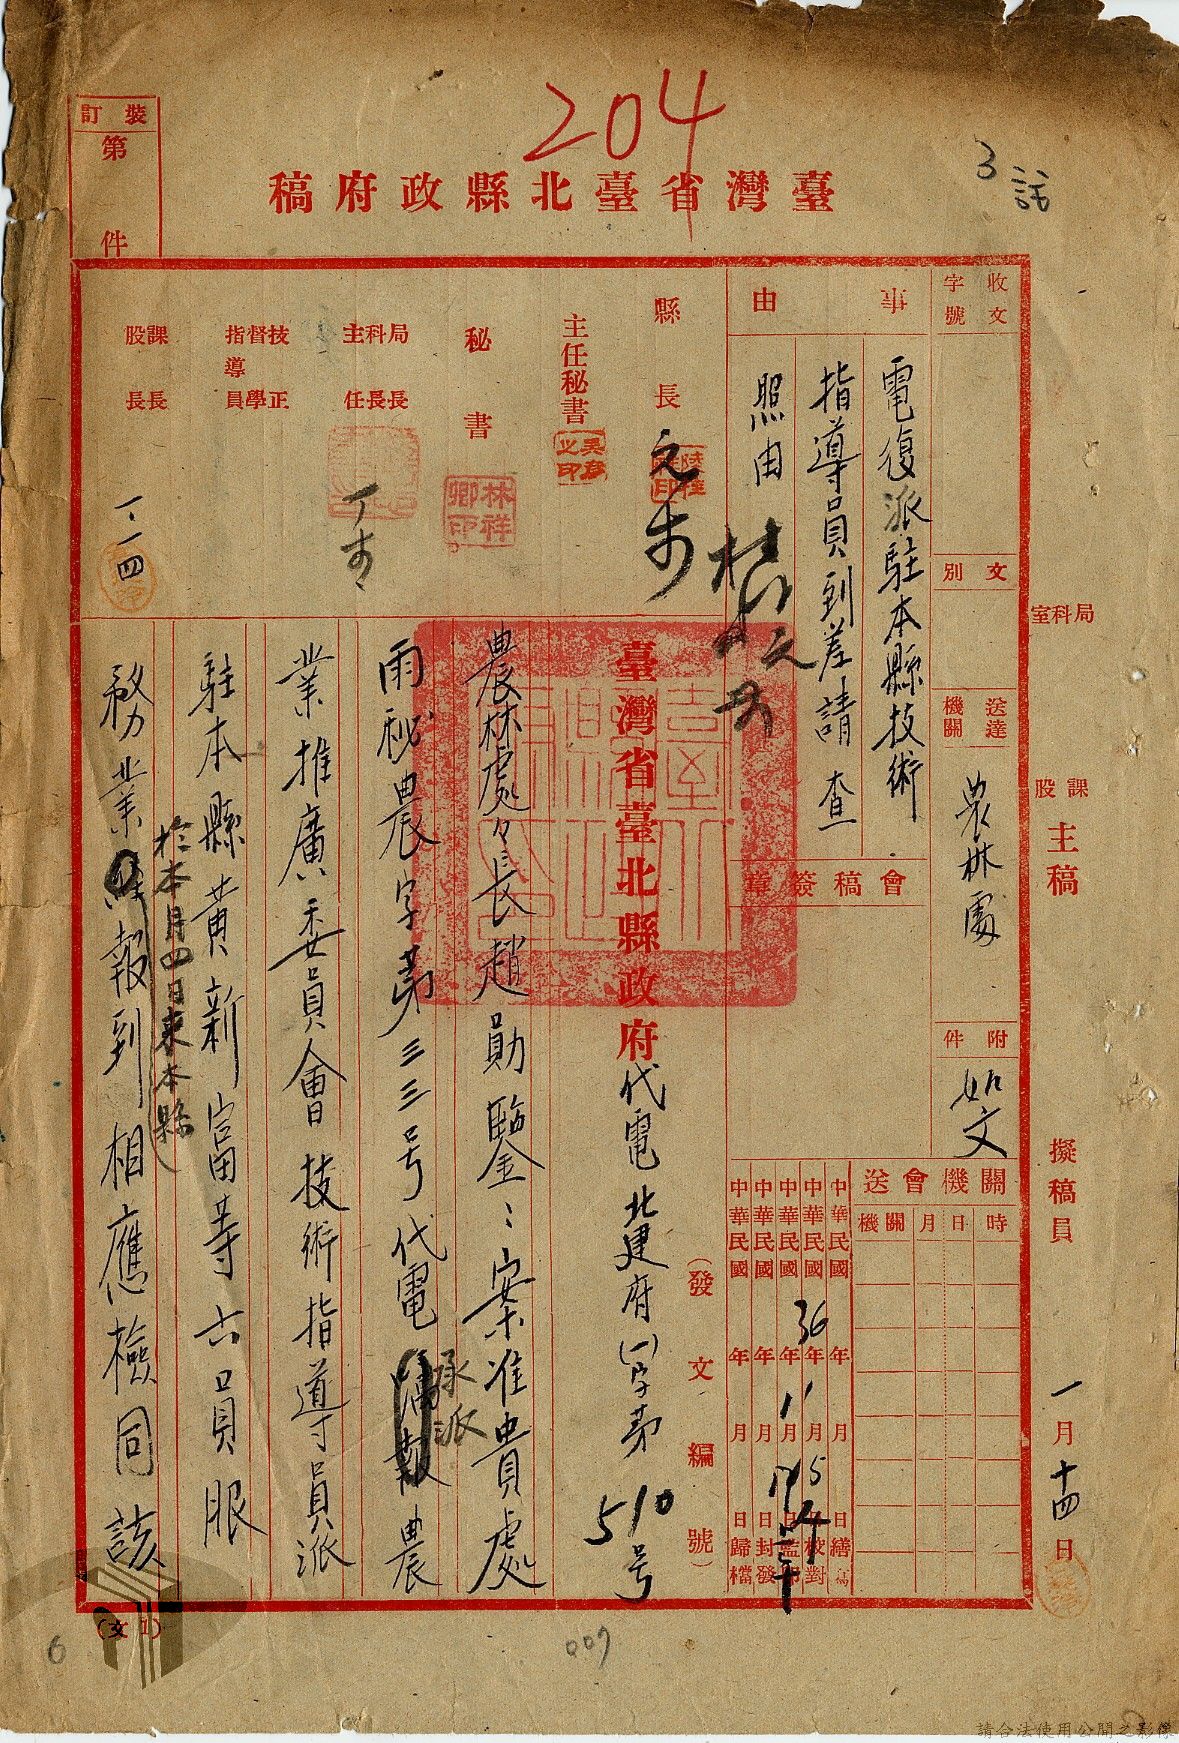 204
3
裝訂
第
件
臺灣省臺北縣政府稿
局科室
課股
主稿
擬稿員
一月十四日
收文字號
文別
送達機關
農林處
附件
如文
事由
電復派駐本縣技術
指導員到差請查
照由
會稿簽章
關機會送
時
日
月
關機
中華民國 年 月 日繕
中華民國36年1月15日校對
中華民國 年 月 日監印
中華民國 年 月 日封發
中華民國 年 月 日歸檔
縣長
主任秘書
秘書
林祥卿印
局長
科長
主任
技正
督學
指導員
課長
股長
一、一四
(發文編號)
臺灣省臺北縣政府代電 北建府(一)字第510号
農林處々長趙勛鑒:案准貴處
雨秘農字第三三号代電
承派
報農
業推廣委員會技術指導員派
駐本縣黃新富等六員服
於本月四日來本縣
務業
報到相應檢同該
(文1)
6
007
請合法使用公開之影像